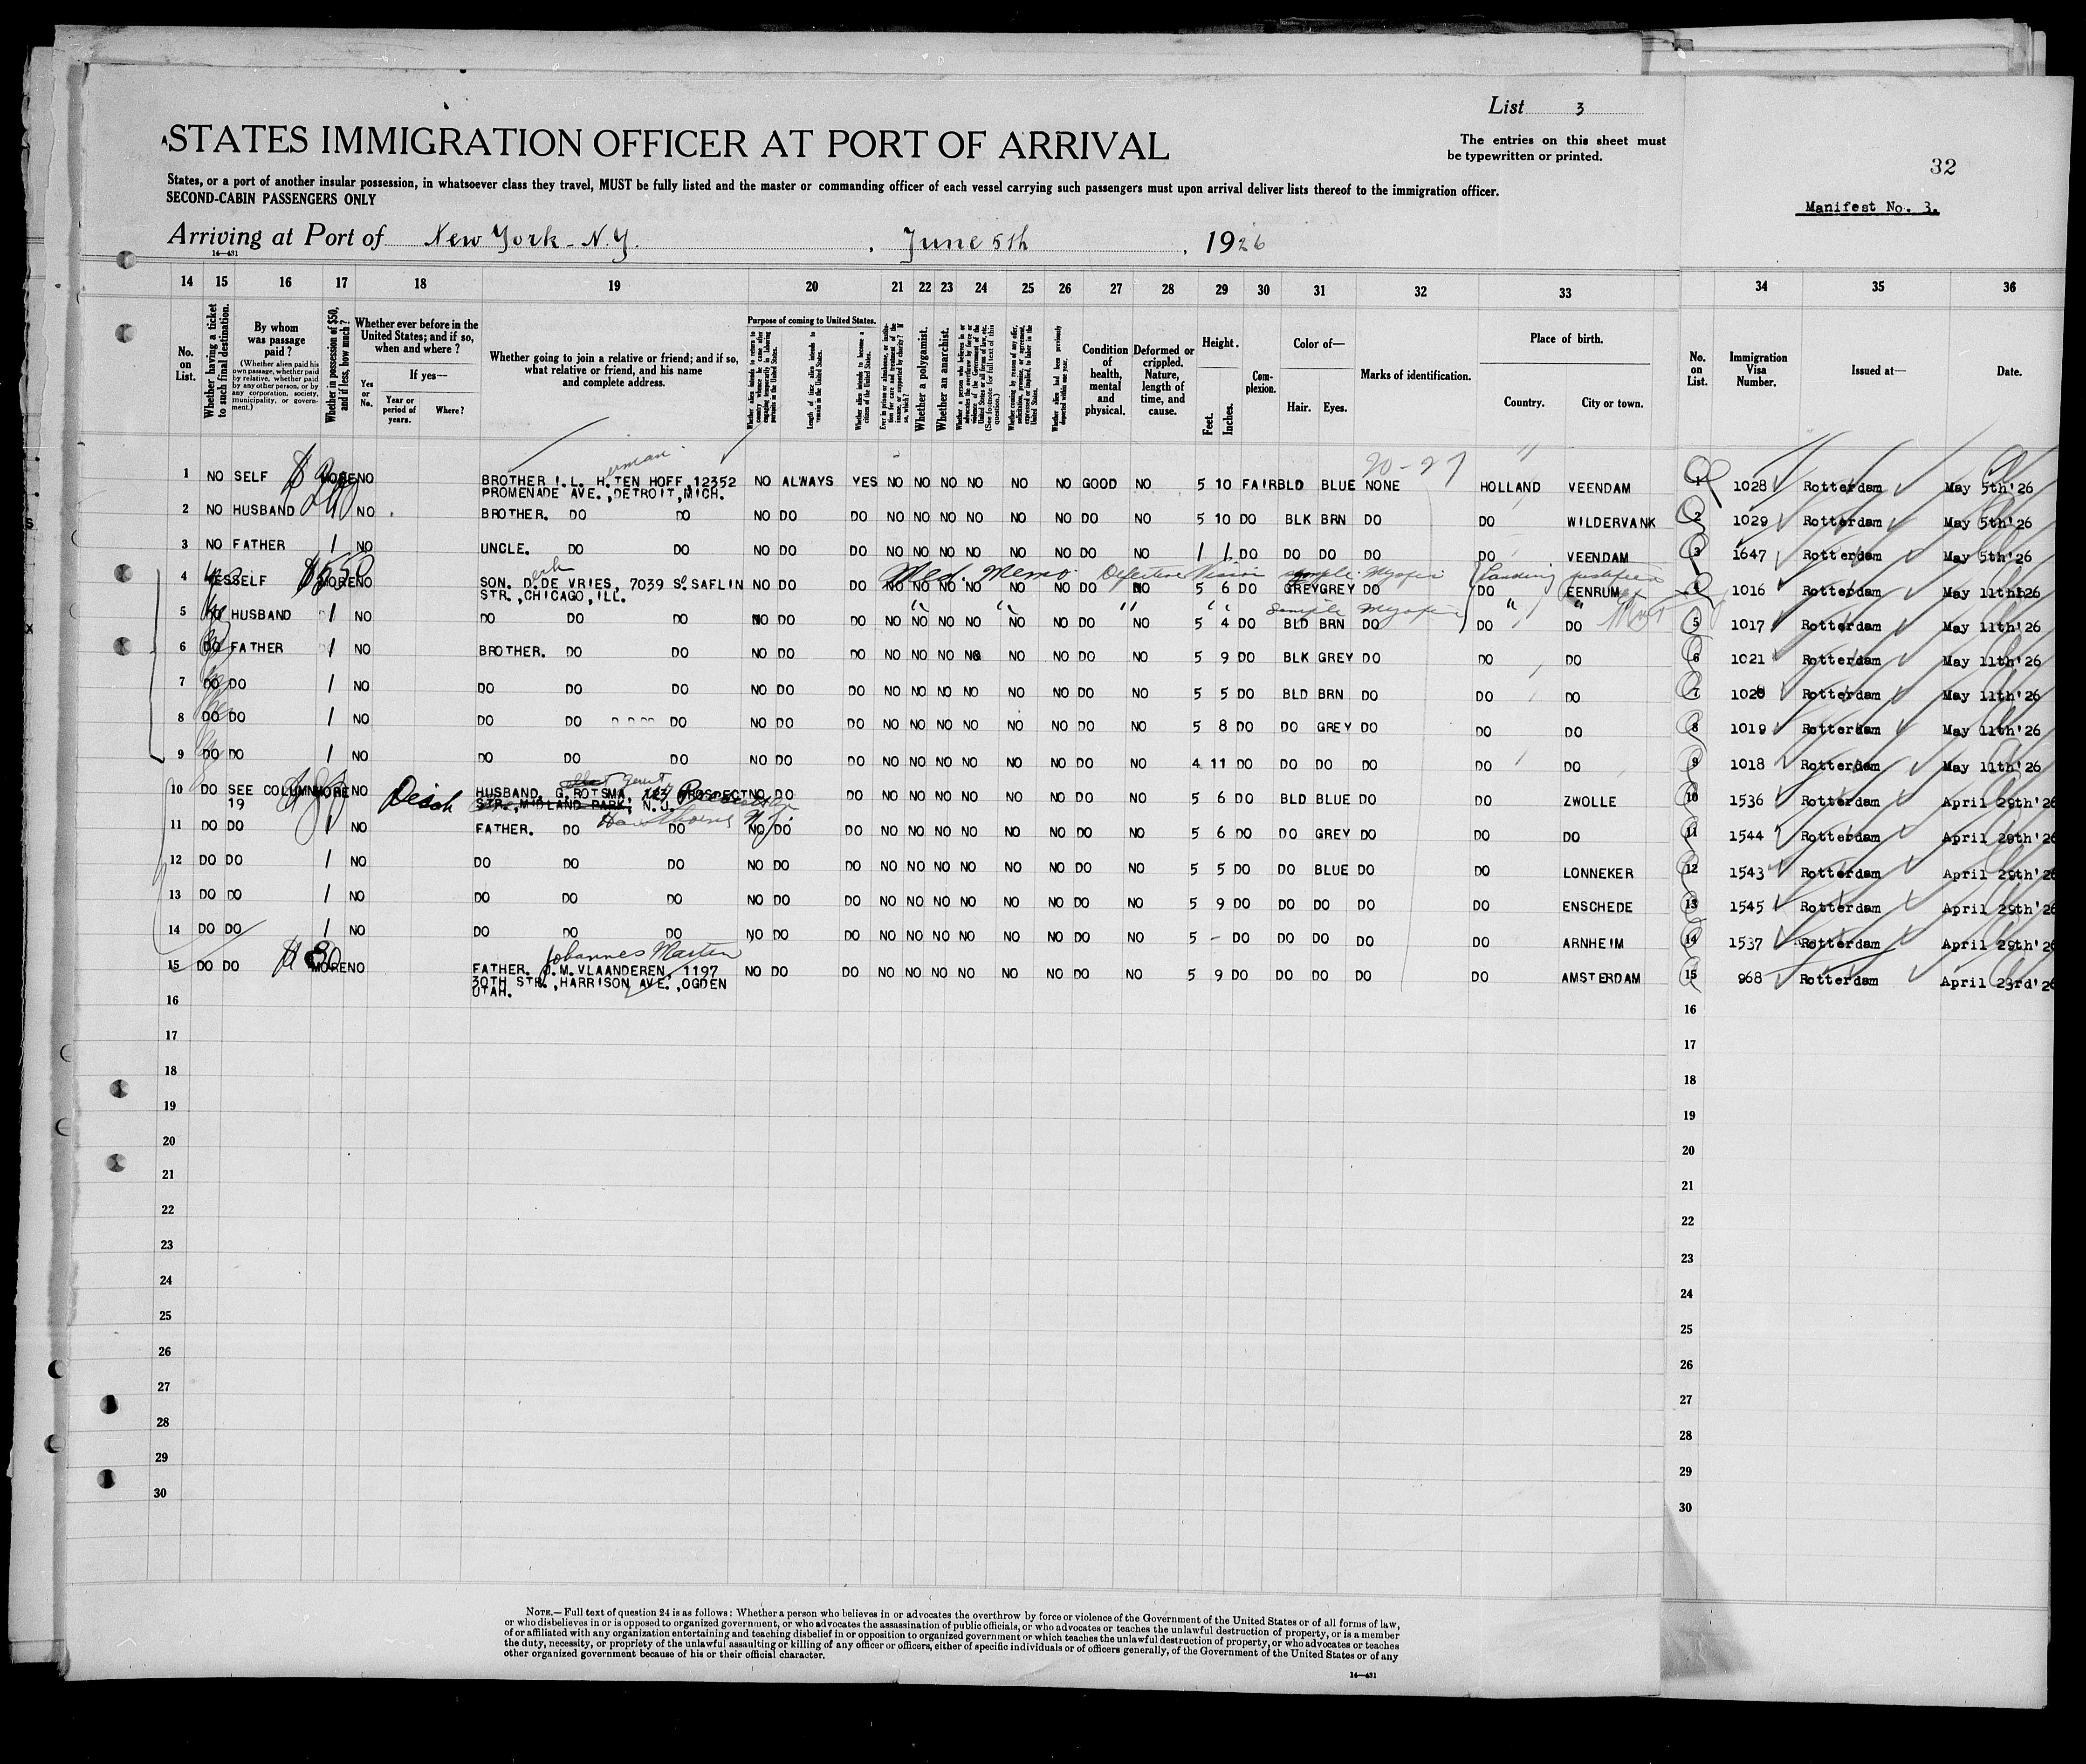 List 3
STATES IMMIGRATION OFFICER AT PORT OF ARRIVAL
The entries on this sheet must
be typewritten or printed.
32
States, or a port of another insular possession, in whatsoever class they travel, MUST be fully listed and the master or commanding officer of each vessel carrying such passengers must upon arrival deliver lists thereof to the immigration officer.
SECOND-CABIN PASSENGERS ONLY
Manifest No. 3.
Arriving at Port of New York - N.Y. , June 5th , 1926
16—431
14 15 16 17 18 19 20 21 22 23 24 25 26 27 28 29 30 31 32 33 34 35 36
No. on List.
Whether having a ticket to such final destination.
By whom was passage paid?
(Whether alien paid his own passage, whether paid by relative, whether paid by any other person, or by any corporation, society, municipality, or government.)
Whether in possession of $50, and if less, how much?
Whether ever before in the United States; and if so, when and where?
Yes or No.
If yes—
Year or period of years.
Where?
Whether going to join a relative or friend; and if so, what relative or friend, and his name and complete address.
Purpose of coming to United States.
Length of time alien intends to remain in the United States.
Whether alien intends to become a citizen of the United States.
Whether a polygamist.
Whether an anarchist.
Condition of health, mental and physical.
Deformed or crippled. Nature, length of time, and cause.
Height.
Feet.
Inches.
Complexion.
Color of—
Hair.
Eyes.
Marks of identification.
Place of birth.
Country.
City or town.
No. on List.
Immigration Visa Number.
Issued at—
Date.
20-27
1 NO SELF MORE NO BROTHER I.L. H. TEN HOFF, 12352 NO ALWAYS YES NO NO NO NO NO NO GOOD NO 5 10 FAIR BLD BLUE NONE HOLLAND VEENDAM 1 1028 Rotterdam May 5th'26
PROMENADE AVE., DETROIT, MICH.
2 NO HUSBAND NO BROTHER. DO DO NO DO DO NO NO NO NO NO NO DO NO 5 10 DO BLK BRN DO DO WILDERVANK 2 1029 Rotterdam May 5th'26
3 NO FATHER NO UNCLE. DO DO NO DO DO NO NO NO NO NO NO DO NO DO DO DO DO DO VEENDAM 3 1647 Rotterdam May 5th'26
Med. Memo Defective Vision simple Myopia Landing justified
4 YES SELF MORE NO SON. D. DE VRIES, 7039 So SAFLIN NO DO DO NO NO NO NO NO NO DO NO 5 6 DO GREY GREY DO DO EENRUM 4 1016 Rotterdam May 11th'26
STR., CHICAGO, ILL.
" " " " simple Myopia " "
5 HUSBAND NO DO DO DO NO DO DO NO NO NO NO NO NO DO NO 5 4 DO BLD BRN DO DO DO 5 1017 Rotterdam May 11th'26
6 DO FATHER NO BROTHER. DO DO NO DO DO NO NO NO NO NO NO DO NO 5 9 DO BLK GREY DO DO DO 6 1021 Rotterdam May 11th'26
7 DO DO NO DO DO DO NO DO DO NO NO NO NO NO NO DO NO 5 5 DO BLD BRN DO DO DO 7 Rotterdam May 11th'26
8 DO DO NO DO DO DO NO DO DO NO NO NO NO NO NO DO NO 5 8 DO DO GREY DO DO DO 8 1019 Rotterdam May 11th'26
9 DO DO NO DO DO DO NO DO DO NO NO NO NO NO NO DO NO 4 11 DO DO DO DO DO DO 9 1018 Rotterdam May 11th'26
10 DO SEE COLUMN MORE NO HUSBAND. G. ROTSMA, PROSPECT NO DO DO NO NO NO NO NO NO DO NO 5 6 DO BLD BLUE DO DO ZWOLLE 10 1536 Rotterdam April 29th'26
19 STR., MIDLAND PARK, N.J.
Hawthorne N.J.
11 DO DO NO FATHER. DO DO NO DO DO NO NO NO NO NO NO DO NO 5 6 DO DO GREY DO DO DO 11 1544 Rotterdam April 29th'26
12 DO DO NO DO DO DO NO DO DO NO NO NO NO NO NO DO NO 5 5 DO DO BLUE DO DO LONNEKER 12 1543 Rotterdam April 29th'26
13 DO DO NO DO DO DO NO DO DO NO NO NO NO NO NO DO NO 5 9 DO DO DO DO DO ENSCHEDE 13 1545 Rotterdam April 29th'26
14 DO DO NO DO DO DO NO DO DO NO NO NO NO NO NO DO NO 5 - DO DO DO DO DO ARNHEIM 14 1537 Rotterdam April 29th'26
Johannes Marten
15 DO DO $80 MORE NO FATHER. J.M. VLAANDEREN, 1197 NO DO DO NO NO NO NO NO NO DO NO 5 9 DO DO DO DO DO AMSTERDAM 15 968 Rotterdam April 23rd'26
30TH STR., HARRISON AVE., OGDEN
UTAH.
16 16
17 17
18 18
19 19
20 20
21 21
22 22
23 23
24 24
25 25
26 26
27 27
28 28
29 29
30 30
NOTE.—Full text of question 24 is as follows: Whether a person who believes in or advocates the overthrow by force or violence of the Government of the United States or of all forms of law,
or who disbelieves in or is opposed to organized government, or who advocates the assassination of public officials, or who advocates or teaches the unlawful destruction of property, or is a member
of or affiliated with any organization entertaining and teaching disbelief in or opposition to organized government or which teaches the unlawful destruction of property, or who advocates or teaches
the duty, necessity, or propriety of the unlawful assaulting or killing of any officer or officers, either of specific individuals or of officers generally, of the Government of the United States or of any
other organized government because of his or their official character.
14—431